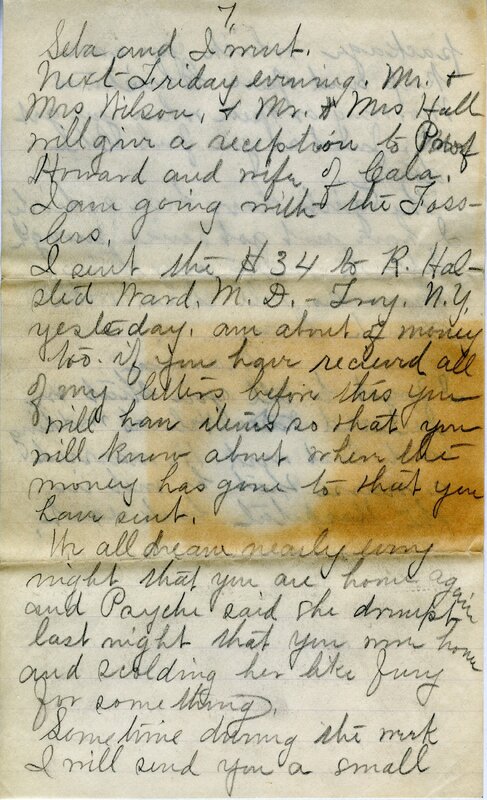 7
Seba and I went.
Next Friday evening. Mr. &
Mrs Wilson, & Mr. & Mrs Hall
will give a reception to Prof
Howard and wife of Cala.
I am going with the Foss-
lers.
I sent the $34 to R. Hal-
sted Ward, M. D. - Troy, N.Y.
yesterday. am about of money
too. if you have recieved all
of my letters before this you
will have items so that you
will know about when the
money has gone to that you
have sent.
We all dream nearly every
night that you are home again
and Psyche said she drempt
last night that you were home
and scolding her like fury
for something.
Sometime during the week
I will send you a small